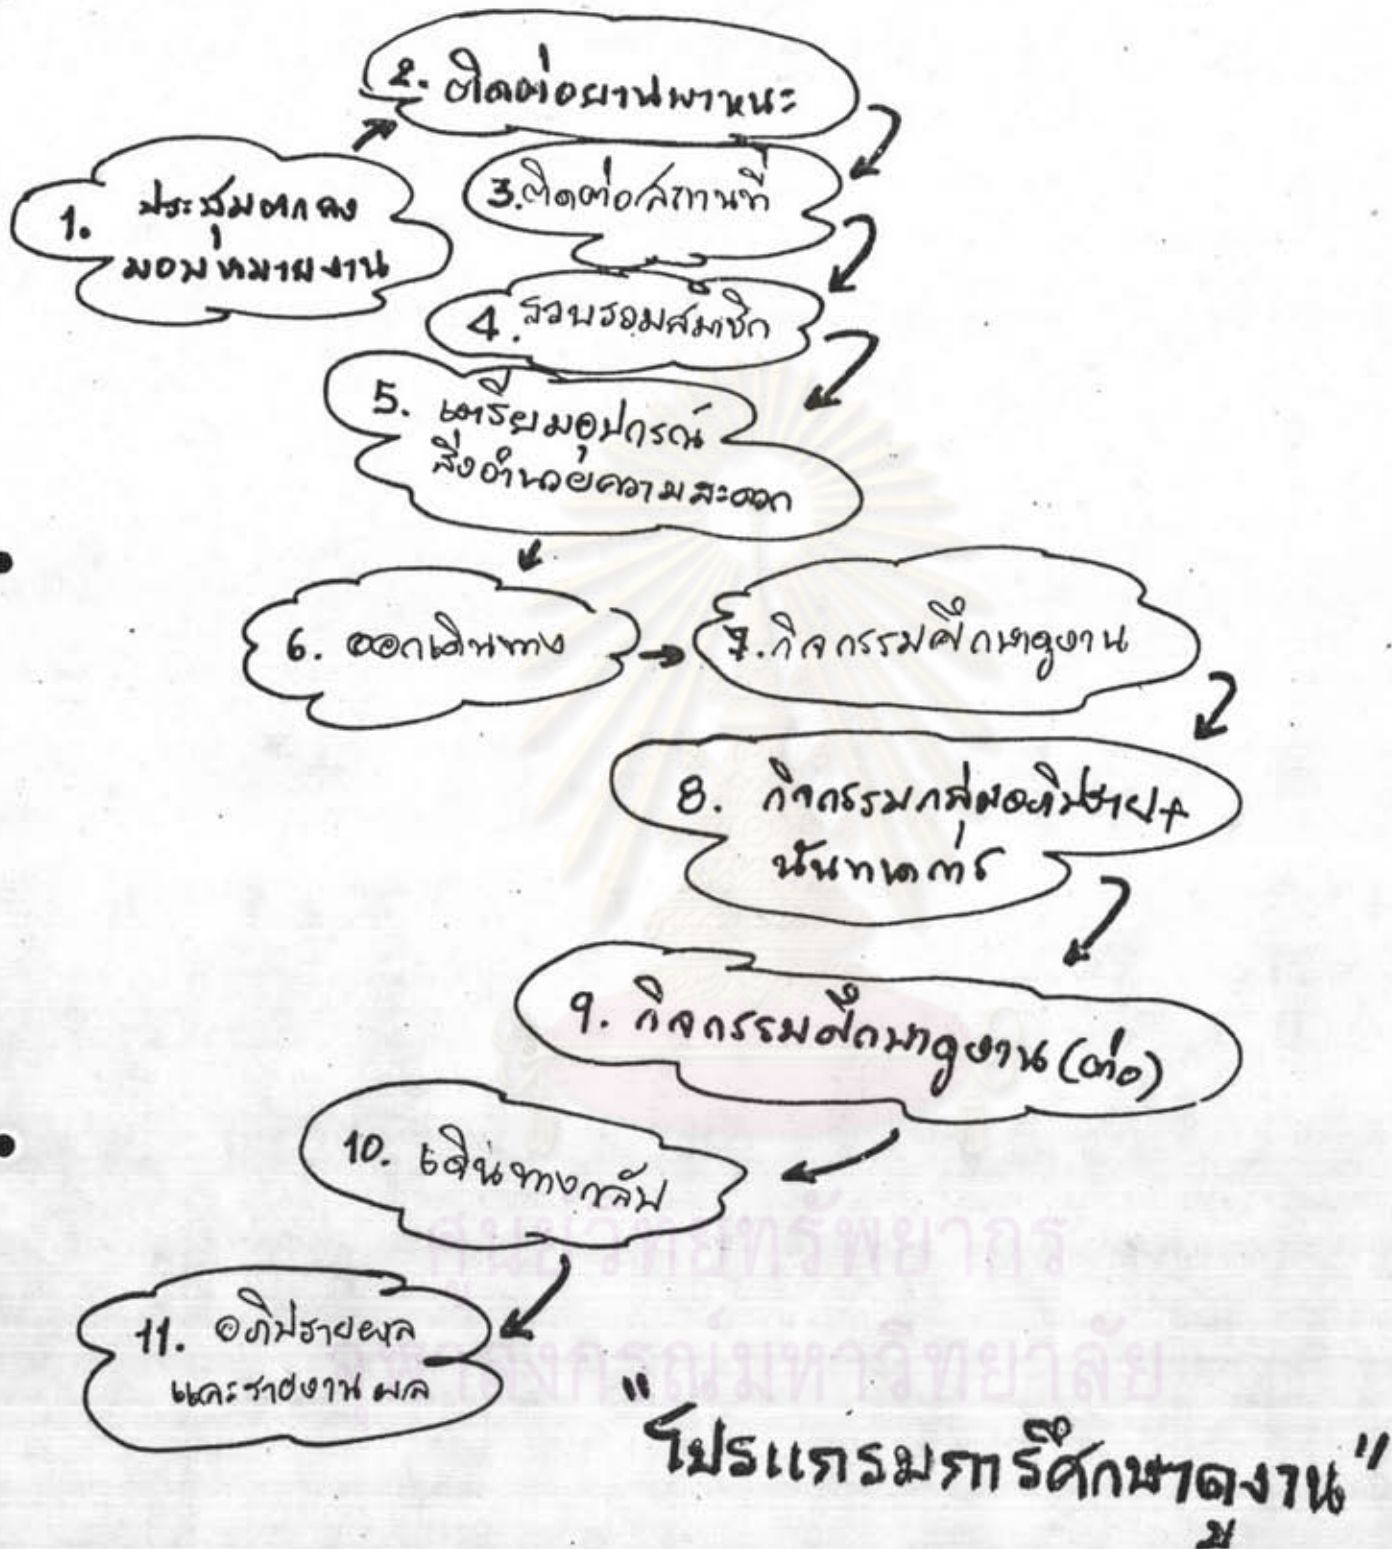 1. ประชุมตกลง
มอบหมายงาน
2. ติดต่อยานพาหนะ
3. ติดต่อสถานที่
4. รวบรวมสมาชิก
5. เตรียมอุปกรณ์
สิ่งอำนวยความสะดวก
6. ออกเดินทาง
7. กิจกรรมศึกษาดูงาน
8. กิจกรรมกลุ่มอภิปราย +
นันทนาการ
9. กิจกรรมศึกษาดูงาน (ต่อ)
10. เดินทางกลับ
11. อภิปรายผล
และรายงานผล
ศูนย์วิทยทรัพยากร
จุฬาลงกรณ์มหาวิทยาลัย
"โปรแกรมการศึกษาดูงาน"